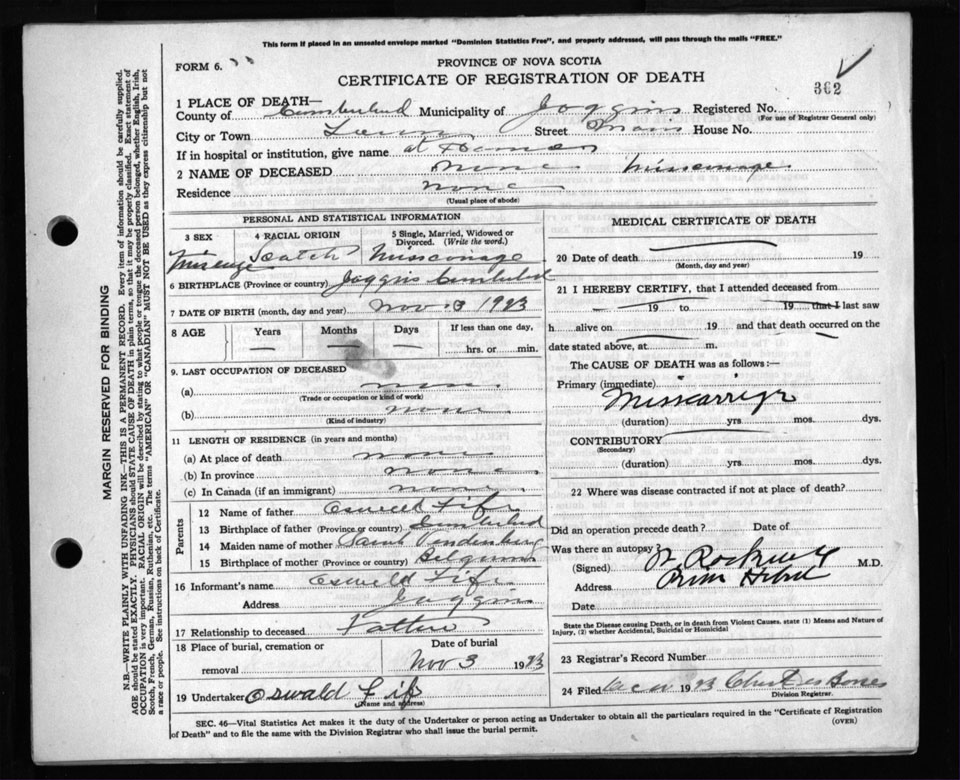 This form if placed in an unsealed envelope marked "Dominion Statistics Free", and properly addressed, will pass through the mails "FREE."
FORM 6.
PROVINCE OF NOVA SCOTIA
CERTIFICATE OF REGISTRATION OF DEATH
362
1 PLACE OF DEATH—
County of Cumberland Municipality of Joggins Registered No.
(For use of Registrar General only)
City or Town Town Street Main House No.
If in hospital or institution, give name at Home
2 NAME OF DECEASED none
Residence none
(Usual place of abode)
PERSONAL AND STATISTICAL INFORMATION
3 SEX 4 RACIAL ORIGIN 5 Single, Married, Widowed or Divorced. (Write the word.)
Scotch
6 BIRTHPLACE (Province or country) Joggins Cumberland
7 DATE OF BIRTH (month, day and year) Nov 3 1923
8 AGE Years Months Days If less than one day,
— — — hrs. or min.
9. LAST OCCUPATION OF DECEASED
(a) none
(Trade or occupation or kind of work)
(b) none
(Kind of industry)
11 LENGTH OF RESIDENCE (in years and months)
(a) At place of death none
(b) In province none
(c) In Canada (if an immigrant) none
Parents
12 Name of father Oswald Fife
13 Birthplace of father (Province or country) Cumberland
14 Maiden name of mother Sarah
15 Birthplace of mother (Province or country) Belgium
16 Informant's name Oswald Fife
Address Joggins
17 Relationship to deceased Father
18 Place of burial, cremation or removal Date of burial
Nov 3 1923
19 Undertaker Oswald Fife
(Name and address)
MEDICAL CERTIFICATE OF DEATH
20 Date of death 19
(Month, day and year)
21 I HEREBY CERTIFY, that I attended deceased from
19 to 19 that I last saw
h alive on 19 and that death occurred on the
date stated above, at m.
The CAUSE OF DEATH was as follows:—
Primary (immediate)
Miscarriage
(duration) yrs. mos. dys.
CONTRIBUTORY
(Secondary)
(duration) yrs. mos. dys.
22 Where was disease contracted if not at place of death?
Did an operation precede death? Date of
Was there an autopsy?
(Signed) Rockwell M.D.
Address River Hebert
Date
State the Disease causing Death, or in death from Violent Causes, state (1) Means and Nature of
Injury, (2) whether Accidental, Suicidal or Homicidal
23 Registrar's Record Number
24 Filed 1923 Jones
Division Registrar.
SEC. 46—Vital Statistics Act makes it the duty of the Undertaker or person acting as Undertaker to obtain all the particulars required in the "Certificate of Registration
of Death" and to file the same with the Division Registrar who shall issue the burial permit. (OVER)
MARGIN RESERVED FOR BINDING
N.B.—WRITE PLAINLY WITH UNFADING INK—THIS IS A PERMANENT RECORD. Every item of information should be carefully supplied.
AGE should be stated EXACTLY. PHYSICIANS should STATE CAUSE OF DEATH in plain terms, so that it may be properly classified. Exact statement of
OCCUPATION is very important. RACIAL ORIGIN will be described by stating to what people or tongue the deceased person belonged, whether English, Irish,
Scotch, French, German, Russian, Ruthenian, etc. The terms "AMERICAN" OR "CANADIAN" MUST NOT BE USED as they express citizenship but not
a race or people. See instructions on back of Certificate.